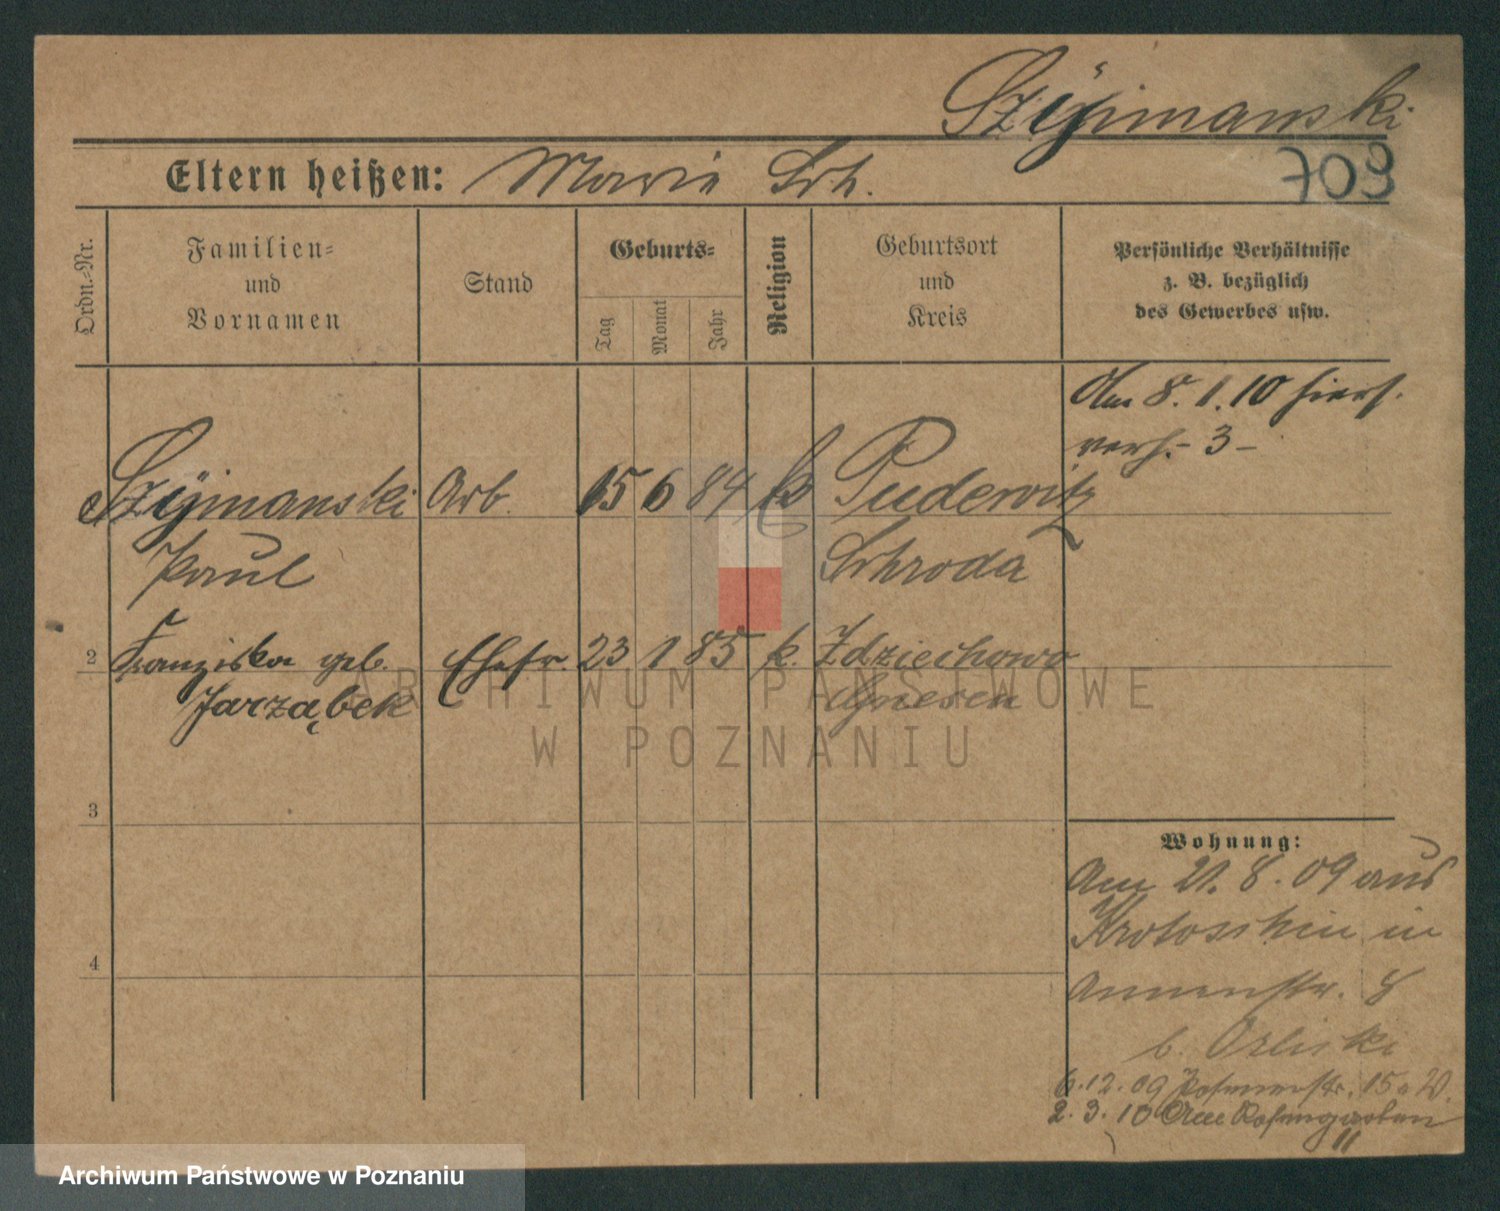 Szÿmanski
Eltern heißen: Marie Srh.
709
Ordn.=Nr.
Familien=
und
Vornamen
Stand
Geburts=
Tag
Monat
Jahr
Religion
Geburtsort
und
Kreis
Persönliche Verhältnisse
z. B. bezüglich
des Gewerbes usw.
Am 8. 1. 10 hiers.
verh. - 3 -
Szÿmanski Arb. 15 6 84 k Pudewitz
Paul Schroda
2 Franziska geb. Ehefr. 23 1 85 k. Zdziechowo
Jarząbek Gnesen
3
4
Wohnung:
Am 21. 8. 09 aus
Krotoschin in
Annenstr. 8
b. Orliski
6.12.09 Posenerstr. 15a W.
2. 3. 10 Rosengarten
11
ARCHIWUM PAŃSTWOWE
W POZNANIU
Archiwum Państwowe w Poznaniu